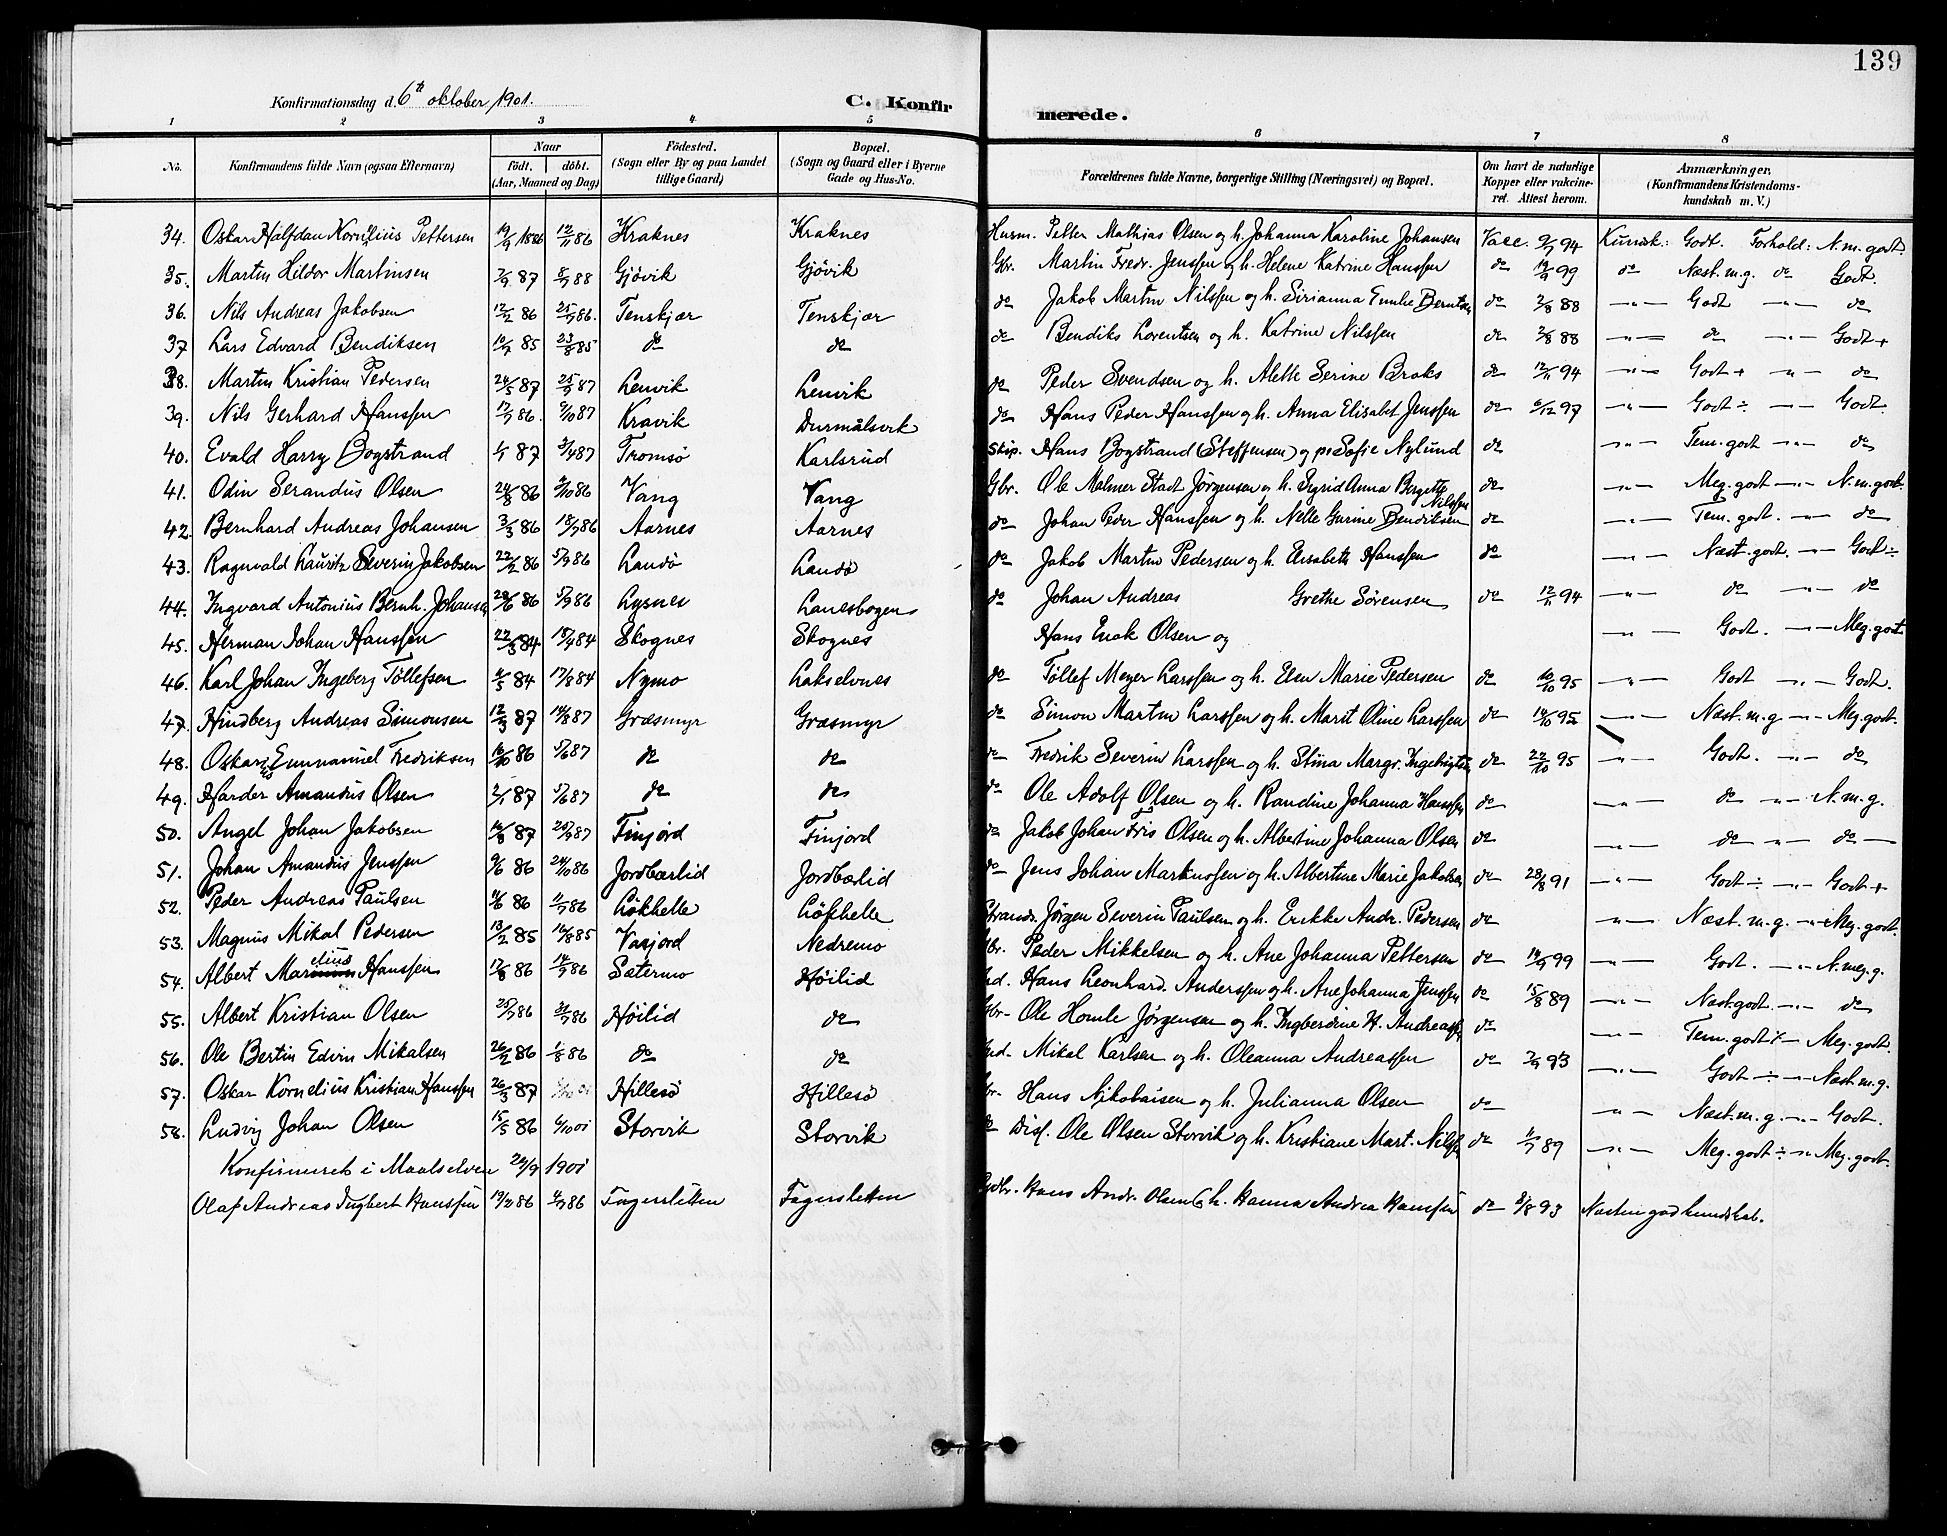 139
Konfirmationsdag d. 6te oktober 1901. C. Konfirmerede.
1 2 3 4 5 6 7 8
No. Konfirmandens fulde Navn (ogsaa Efternavn) Naar födt. döbt. (Aar, Maaned og Dag) Födested. (Sogn eller By og paa Landet tillige Gaard) Bopæl. (Sogn og Gaard eller i Byerne Gade og Hus-No. Forældrenes fulde Navne, borgerlige Stilling (Næringsvei) og Bopæl. Om havt de naturlige Kopper eller vakcineret. Attest herom. Anmærkninger. (Konfirmandens Kristendomskundskab m. V.)
34. Oskar Halfdan Kornelius Pettersen 19/9 1886 12/11 86 Kraknes Kraknes Husm. Petter Mathias Olsen og h. Johanna Karoline Johansen Vacc. 9/7 94 Kundsk.: Godt. Forhold: N.m.godt.
35. Martin Hildor Martinsen 7/9 87 8/7 88 Gjövik Gjövik Gbr. Martin Fredr. Jenssen og h. Helene Katrine Hanssen do 19/9 99 do Næst.m.g. do Godt.
36. Nils Andreas Jakobsen 12/2 86 25/7 86. Tenskjær Tenskjær do Jakob Martin Nilssen og h. Sirianna Emilie Berntsen do 2/8 88 -"- Godt -"- do
37 Lars Edvard Bendiksen 10/7 85 23/8 85 do do do Bendiks Lorentsen og h. Katrine Nilssen do 2/8 88 -"- do -"- Godt+
38. Martin Kristian Pedersen 24/5 87 25/9 87 Lenvik Lenvik do Peder Svendsen og h. Alette Serine Broks do 12/11 94 -"- Godt+ -"- do
39. Nils Gerhard Hanssen 17/7 86. 9/10 87 Kravik Durmålsvik do Hans Peder Hanssen og h. Anna Elisabet Jenssen do 6/12 97 -"- Godt÷ -"- Godt.
40. Evald Harry Bogstrand 1/1 87 3/4 87 Tromsö Karlsrud Skip. Hans Bogstrand (Steffensen) og Sofie Nylund do -"- Tem.godt -"- do
41. Odin Serandus Olsen 24/8 86 3/10 86 Vang Vang Gbr. Ole Melmer Stadt Jörgensen og h. Sigrid Anna Bergitte Nilssen do -"- Meg.godt -"- N.m.godt.
42. Bernhard Andreas Johansen 3/3 86 18/7 86 Aarnes Aarnes do Johan Peder Hanssen og h. Nelle Gurine Bendiksen do -"- Tem.godt. -"- do
43. Ragnvald Lauritz Severin Jakobsen 22/2 86 5/9 86 Landö Landö do Jakob Martin Pedersen og h. Elisabeth Hanssen do -"- Næst.godt. -"- Godt÷
44. Ingvard Antonius Bernh. Johansen 28/6 86 5/9 86 Lysnes Lanesbogen do Johan Andreas Grethe Sörensen do 12/11 94 -"- do -"- do
45. Herman Johan Hanssen 22/3 84 18/4 84 Skognes Skognes Hans Enok Olsen og -"- Godt. -"- Meg.godt
46. Karl Johan Ingeberg Töllefsen 4/5 84 17/8 84 Nymo Lakselvnes do Töllef Meyer Larssen og h. Elen Marie Pedersen do 10/10 95 -"- Godt -"- Godt.
47. Hindberg Andreas Simonsen 12/3 87 14/8 87 Græsmyr Græsmyr do Simon Martin Larssen og h. Marit Oline Larssen do 14/10 95 -"- Næst.m.g -"- Meg.godt.
48. Oskar Emmanuel Fredriksen 16/10 86 5/6 87 do do do Fredrik Severin Larssen og h. Stina Margr. Ingebrigtsen do 22/10 95 -"- Godt. -"- do
49. Harder Amandus Olsen 2/1 87 5/6 87 do do do Ole Adolf Olsen og h. Randine Johanna Hanssen do -"- do -"- N.m.g.
50. Angel Johan Jakobsen 16/8 87 25/9 87 Finjord Finjord do Jakob Johan Friis Olsen og h. Albertine Johanna Olsen do -"- do -"- do
51. Johan Amandus Jenssen 9/6 86 24/10 86 Jordbærlid Jordbærlid do Jens Johan Markussen og h. Albertine Marie Jakobsen do 28/8 91 -"- Godt÷ -"- Godt+
52. Peder Andreas Paulsen 11/6 86 11/7 86 Lökhelle Lökhelle Strands. Jörgen Severin Paulsen og h. Erikke Andr. Pedersen do -"- Næst.m.g. -"- Meg.godt.
53. Magnus Mikal Pedersen 13/2 85 16/8 85 Vasjord Nedremo Gbr. Peder Mikkelsen og h. Ane Johanna Pettersen do 14/9 99 -"- Godt. -"- N.meg.g.
54. Albert Mar elius Hanssen 17/8 86 14/9 86 Sætermo Höilid Ind. Hans Leonhard Anderssen og h. Ane Johanna Jenssen do 15/8 89 -"- Næst.godt. -"- do
55. Albert Kristian Olsen 25/7 86 86 Höilid do Gbr. Ole Homle Jörgensen og h. Ingberdine H. Andreassen do -"- Tem.godt -"- Meg.godt.
56. Ole Bertin Edvin Mikalsen 26/2 86 1/8 86 do do Ind. Mikal Karlsen og h. Oleanna Andreassen do 2/9 93 -"- Godt÷ -"- Næst.m.g.
57. Oskar Kornelius Kristian Hanssen 26/3 87 Hillesö Hillesö Gbr. Hans Nikolaisen og h. Julianna Olsen do -"- Næst.m.g. -"- Godt.
58. Ludvig Johan Olsen 15/5 86 6/10 01 Storvik Storvik do Diss. Ole Olsen Storvik og h. Kristiane Mart. Nilss. do 11/7 89 -"- Meg.godt÷ -"- Meg.godt.
Konfirmeret i Maalselven 29/9 1901
Olaf Andreas Ingbert Hanssen 19/2 86 4/7 86 Fagersletten Fagersletten Gdbr. Hans Andr. Olsen og h. Hanna Andrea Hanssen do 8/8 93 Næsten god kundskab.